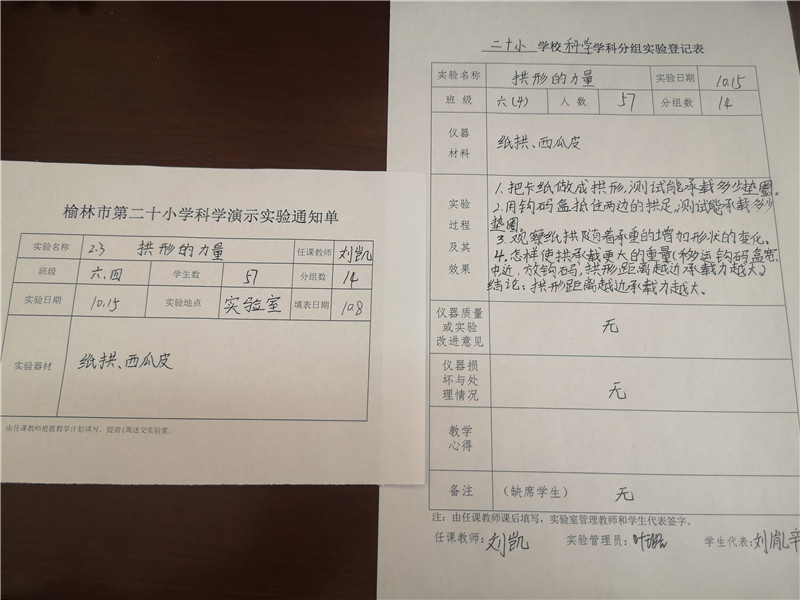 榆林市第二十小学科学演示实验通知单
实验名称 2.3 拱形的力量 任课教师 刘凯
班级 六.四 学生数 57 分组数 14
实验日期 10.15 实验地点 实验室 填表日期 10.8
实验器材 纸拱、西瓜皮
由任课教师根据教学计划填写，提前1周送交实验室。
二十小 学校 科学 学科分组实验登记表
实验名称 拱形的力量 实验日期 10.15
班级 六(4) 人数 57 分组数 14
仪器材料 纸拱、西瓜皮
实验过程及其效果
1.把卡纸做成拱形,测试能承载多少垫圈。
2.用钩码盒抵住两边的拱足,测试能承载多少
垫圈。
3.观察纸拱随着承重的增加形状的变化。
4.怎样使拱承载更大的重量(移运钩码盒宽、
中近,放钩码,拱形距离越近承载力越大)
结论:拱形距离越近承载力越大。
仪器质量或实验改进意见 无
仪器损坏与处理情况 无
教学心得
备注 （缺席学生） 无
注：由任课教师课后填写，实验室管理教师和学生代表签字。
任课教师: 刘凯 实验管理员: 叶 学生代表: 刘胤辛